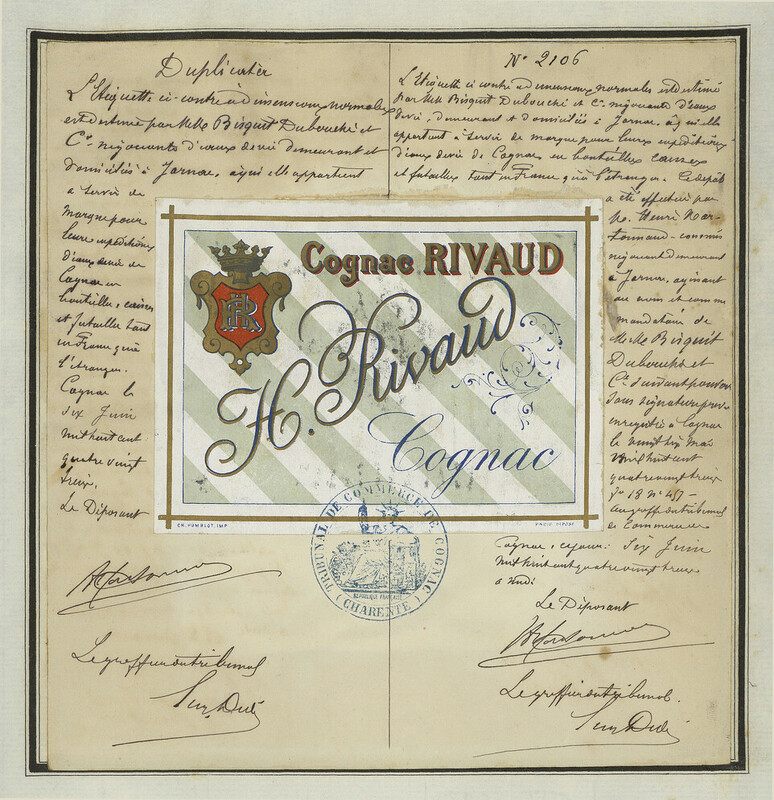 Duplicata
L'Etiquette ci-contre à dimensions normales
est destinée par M.M. Bisquit Dubouché et
Cie négociants d'eaux de vie demeurant et
domiciliés à Jarnac, à qui elle appartient
à servir de
marque pour
leurs expéditions
d'eaux de vie de
Cognac en
bouteilles, caisses
et futailles tant
en France qu'à
l'étranger.
Cognac le
six Juin
mil huit cent
quatre vingt
treize.
Le Déposant
Le greffier du tribunal
No 2106
L'Etiquette ci contre à dimensions normales est destinée
par M.M. Bisquit Dubouché et Cie négociants d'eaux
de vie, demeurant et domiciliés à Jarnac, à qui elle
appartient à servir de marque pour leurs expéditions
d'eaux de vie de Cognac en bouteilles, caisses
et futailles tant en France qu'à l'étranger. Ce dépôt
a été effectué par
M. Henri
négociant demeurant
à Jarnac, agissant
au nom et comme
mandataire de
M.M. Bisquit
Dubouché et
Cie suivant pouvoir
sous signature privée
enregistré à Cognac
le vingt six Mai
mil huit cent
quatre vingt treize
fo 18 No 457
au greffe du tribunal
de Commerce
Cognac, ce jour six Juin
mil huit cent quatre vingt treize
à midi
Le Déposant
Le greffier du tribunal.
Cognac RIVAUD
HR
H. Rivaud
Cognac
CH. HUMBLOT, IMP.
TRIBUNAL DE COMMERCE DE COGNAC
RÉPUBLIQUE FRANÇAISE
(CHARENTE)